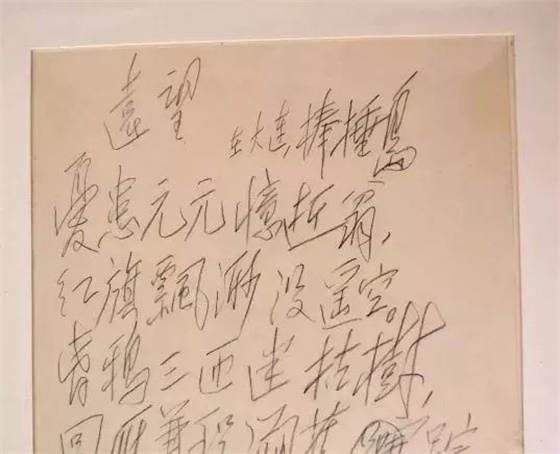 遠望
在大連棒捶島
憂患元元憶逝翁,
红旗飄渺没遥空。
昏鴉三匝迷枯樹,
回雁兼程溯